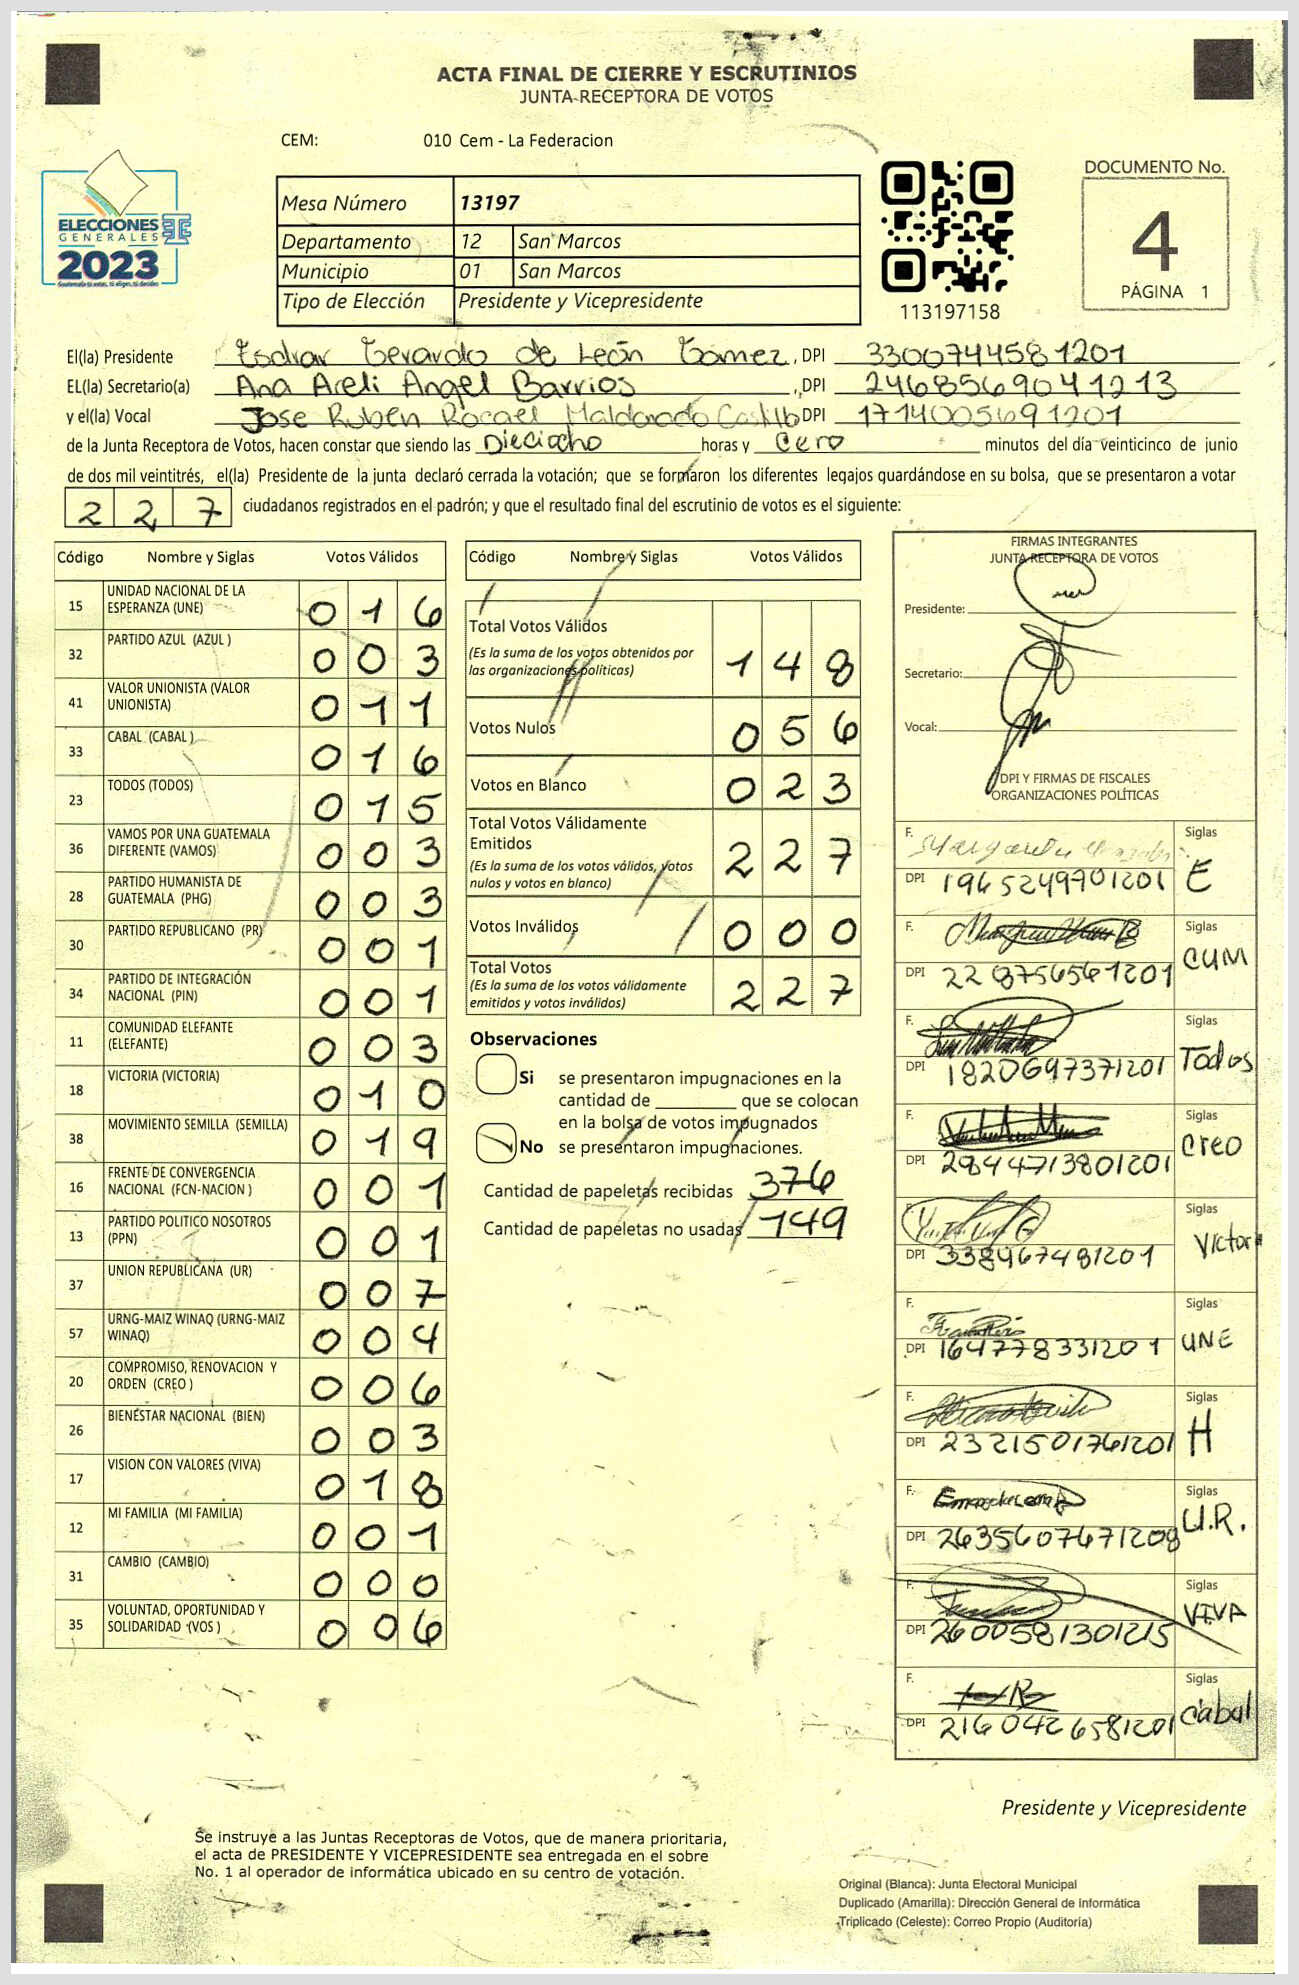 ACTA FINAL DE CIERRE Y ESCRUTINIOS
JUNTA RECEPTORA DE VOTOS
CEM: 010 Cem - La Federacion
DOCUMENTO No.
4
PÁGINA 1
ELECCIONES
GENERALES
2023
Guatemala tú votas, tú eliges, tú decides
Mesa Número 13197
Departamento 12 San Marcos
Municipio 01 San Marcos
Tipo de Elección Presidente y Vicepresidente
113197158
El(la) Presidente Esdrar Gerardo de León Gómez, DPI 3300744581201
EL(la) Secretario(a) Ana Areli Angel Barrios, DPI 2468569041213
y el(la) Vocal Jose Rubén Rocael Maldonado Castillo DPI 1714005691201
de la Junta Receptora de Votos, hacen constar que siendo las Dieciocho horas y cero minutos del día veinticinco de junio
de dos mil veintitrés, el(la) Presidente de la junta declaró cerrada la votación; que se formaron los diferentes legajos guardándose en su bolsa, que se presentaron a votar
227 ciudadanos registrados en el padrón; y que el resultado final del escrutinio de votos es el siguiente:
Código Nombre y Siglas Votos Válidos
15 UNIDAD NACIONAL DE LA ESPERANZA (UNE) 016
32 PARTIDO AZUL (AZUL ) 003
41 VALOR UNIONISTA (VALOR UNIONISTA) 011
33 CABAL (CABAL ) 016
23 TODOS (TODOS) 015
36 VAMOS POR UNA GUATEMALA DIFERENTE (VAMOS) 003
28 PARTIDO HUMANISTA DE GUATEMALA (PHG) 003
30 PARTIDO REPUBLICANO (PR) 001
34 PARTIDO DE INTEGRACIÓN NACIONAL (PIN) 001
11 COMUNIDAD ELEFANTE (ELEFANTE) 003
18 VICTORIA (VICTORIA) 010
38 MOVIMIENTO SEMILLA (SEMILLA) 019
16 FRENTE DE CONVERGENCIA NACIONAL (FCN-NACION ) 001
13 PARTIDO POLITICO NOSOTROS (PPN) 001
37 UNION REPUBLICANA (UR) 007
57 URNG-MAIZ WINAQ (URNG-MAIZ WINAQ) 004
20 COMPROMISO, RENOVACION Y ORDEN (CREO ) 006
26 BIENESTAR NACIONAL (BIEN) 003
17 VISION CON VALORES (VIVA) 018
12 MI FAMILIA (MI FAMILIA) 001
31 CAMBIO (CAMBIO) 000
35 VOLUNTAD, OPORTUNIDAD Y SOLIDARIDAD (VOS ) 006
Código Nombre y Siglas Votos Válidos
Total Votos Válidos 148
(Es la suma de los votos obtenidos por
las organizaciones políticas)
Votos Nulos 056
Votos en Blanco 023
Total Votos Válidamente
Emitidos 227
(Es la suma de los votos válidos, votos
nulos y votos en blanco)
Votos Inválidos 000
Total Votos 227
(Es la suma de los votos válidamente
emitidos y votos inválidos)
Observaciones
Si se presentaron impugnaciones en la
cantidad de ________ que se colocan
en la bolsa de votos impugnados
No se presentaron impugnaciones.
Cantidad de papeletas recibidas 376
Cantidad de papeletas no usadas 149
FIRMAS INTEGRANTES
JUNTA RECEPTORA DE VOTOS
Presidente:
Secretario:
Vocal:
DPI Y FIRMAS DE FISCALES
ORGANIZACIONES POLÍTICAS
F. Siglas
DPI 1965249701201 E
F. Siglas
DPI 2287565671201 CUM
F. Siglas
DPI 1820697371201 Todos
F. Siglas
DPI 2984471380 1201 Creo
F. Siglas
DPI 338967481201 Victor
F. Siglas
DPI 164778331201 UNE
F. Siglas
DPI 2321501761201 H
F. Siglas
DPI 2635607671208 U.R.
F. Siglas
DPI 2600581301215 VIVA
F. Siglas
DPI 2160426581201 Cabal
Presidente y Vicepresidente
Se instruye a las Juntas Receptoras de Votos, que de manera prioritaria,
el acta de PRESIDENTE Y VICEPRESIDENTE sea entregada en el sobre
No. 1 al operador de informática ubicado en su centro de votación.
Original (Blanca): Junta Electoral Municipal
Duplicado (Amarilla): Dirección General de Informática
Triplicado (Celeste): Correo Propio (Auditoría)